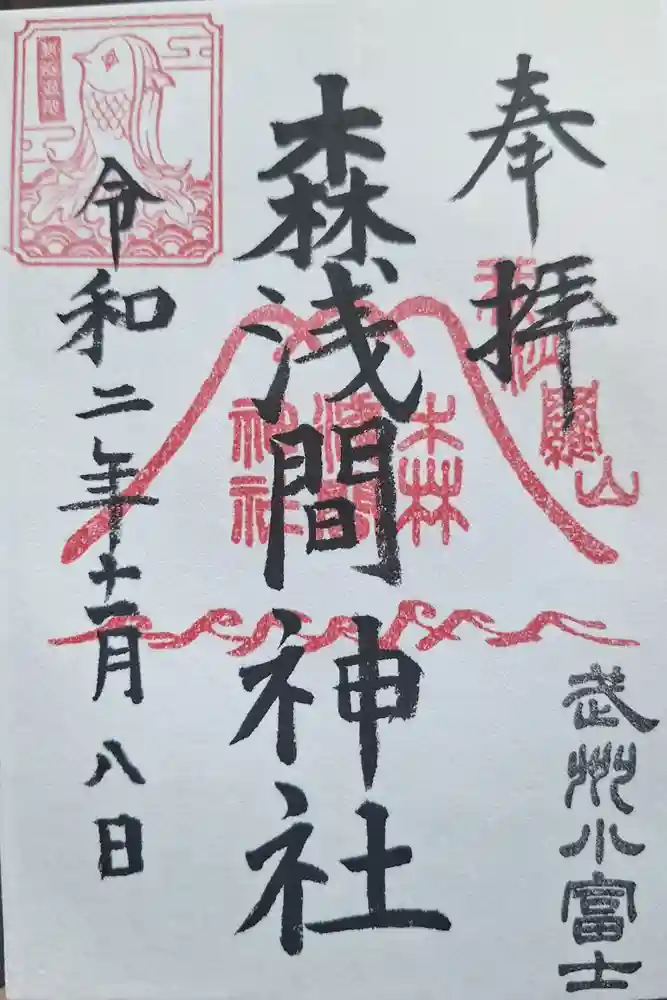 奉拝
武州小富士
森浅間神社
森
浅間
神社
令和二年十一月八日